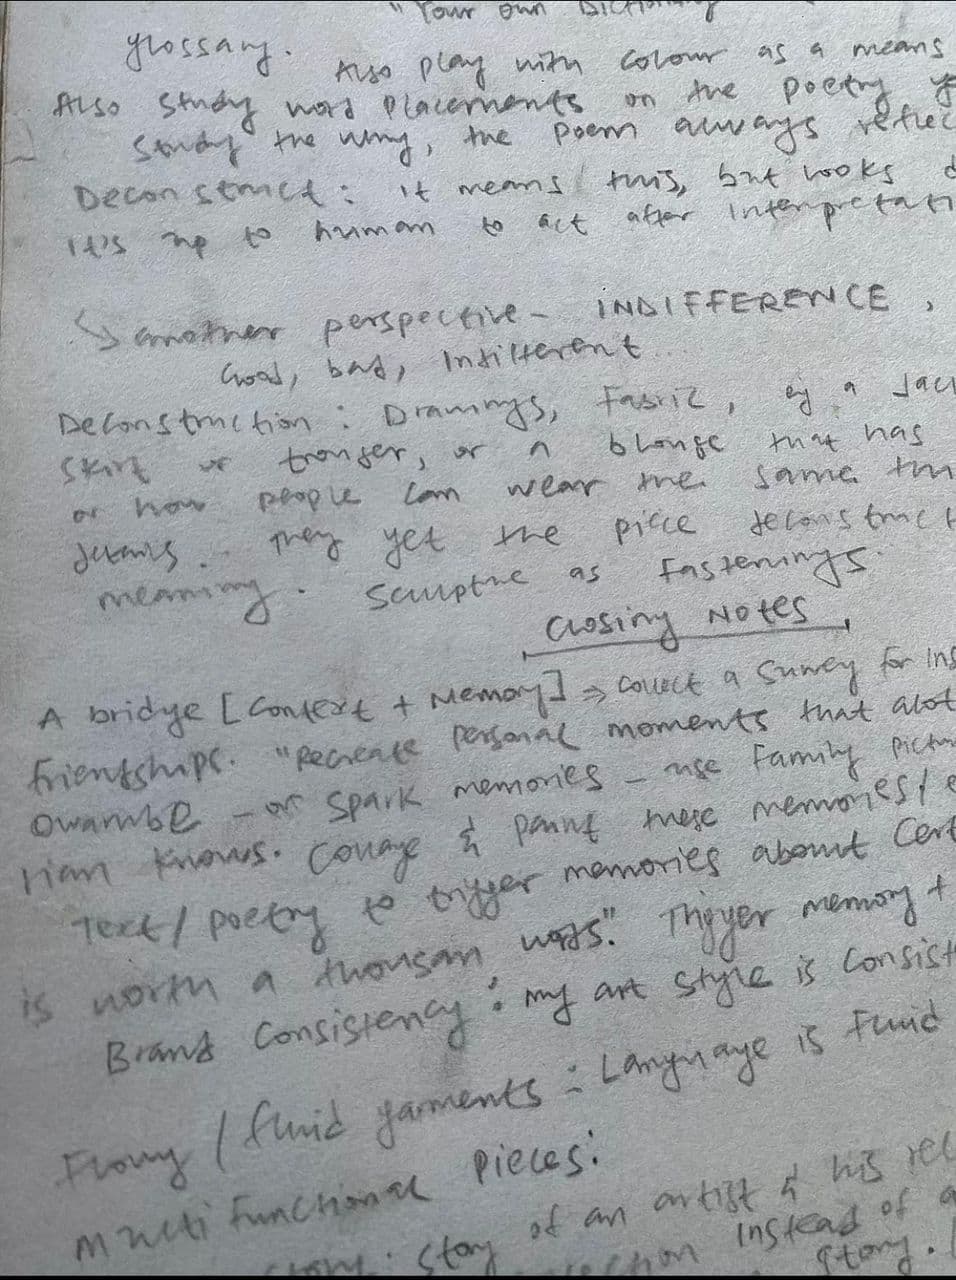 "Your own Dictionary
glossary. Also play with colour as a means
Also study word placements on the poetry
study the why, the poem always reflec
Deconstruct: it means this, but looks d
it's up to human to act after interpretati
↳ another perspective - INDIFFERENCE,
Good, bad, Indifferent...
Deconstruction: Drawings, Fabric, eg a Jac
skirt or trouser, or a blouse that has
or how people can wear the same thi
details. They yet the piece deconstruct
meaning. Sculpture as Fastenings.
Closing Notes
A bridge [Context + Memory] ⇒ collect a survey for ins
friendships. "Recreate personal moments that alot
owambe - or spark memories - use Family pictu
rian knows. Collage & paint these memories/ e
Text/poetry to trigger memories about cert
is worth a thousan words". Trigger memory +
Brand Consistency: my art style is consist
Flowy / fluid garments: Language is fluid
Multi functional pieces:
story. story of an artist & his rel
instead of a
story.